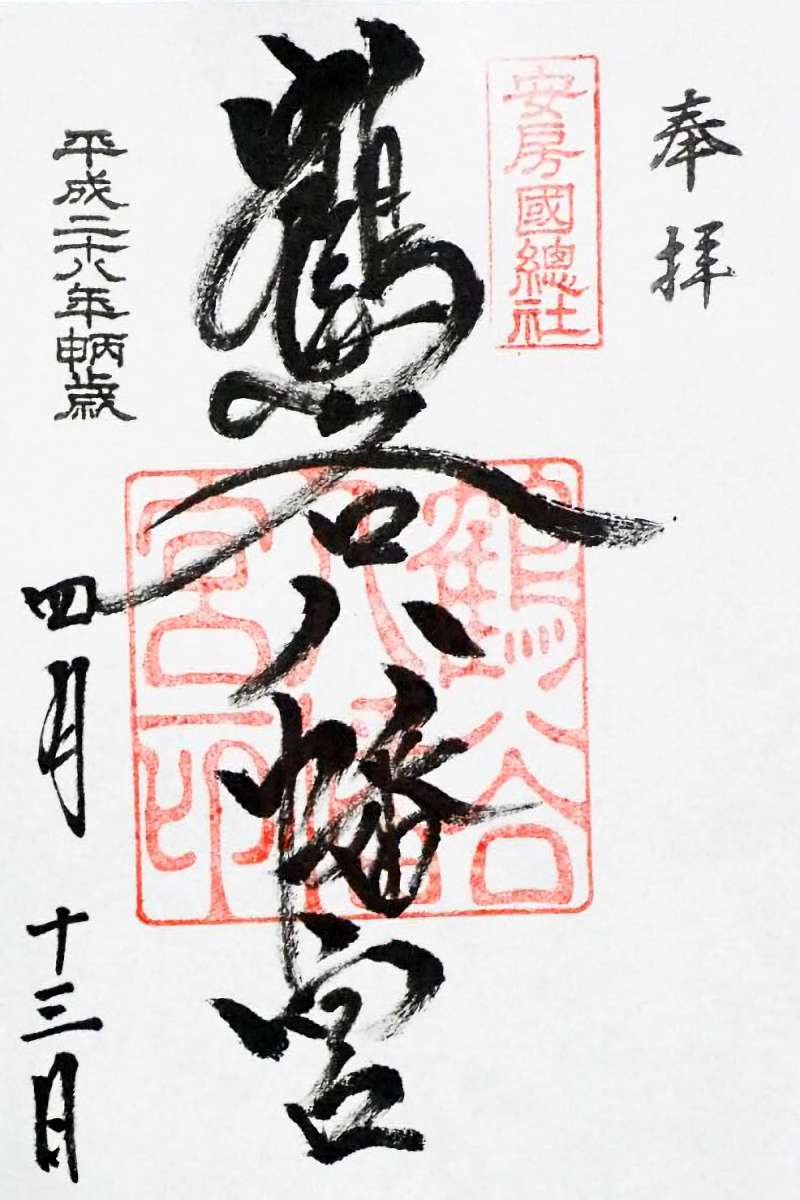 奉拝
安房國總社
鶴谷八幡宮
鶴谷
八幡
宮印
平成二十八年丙申歳
四月十三日